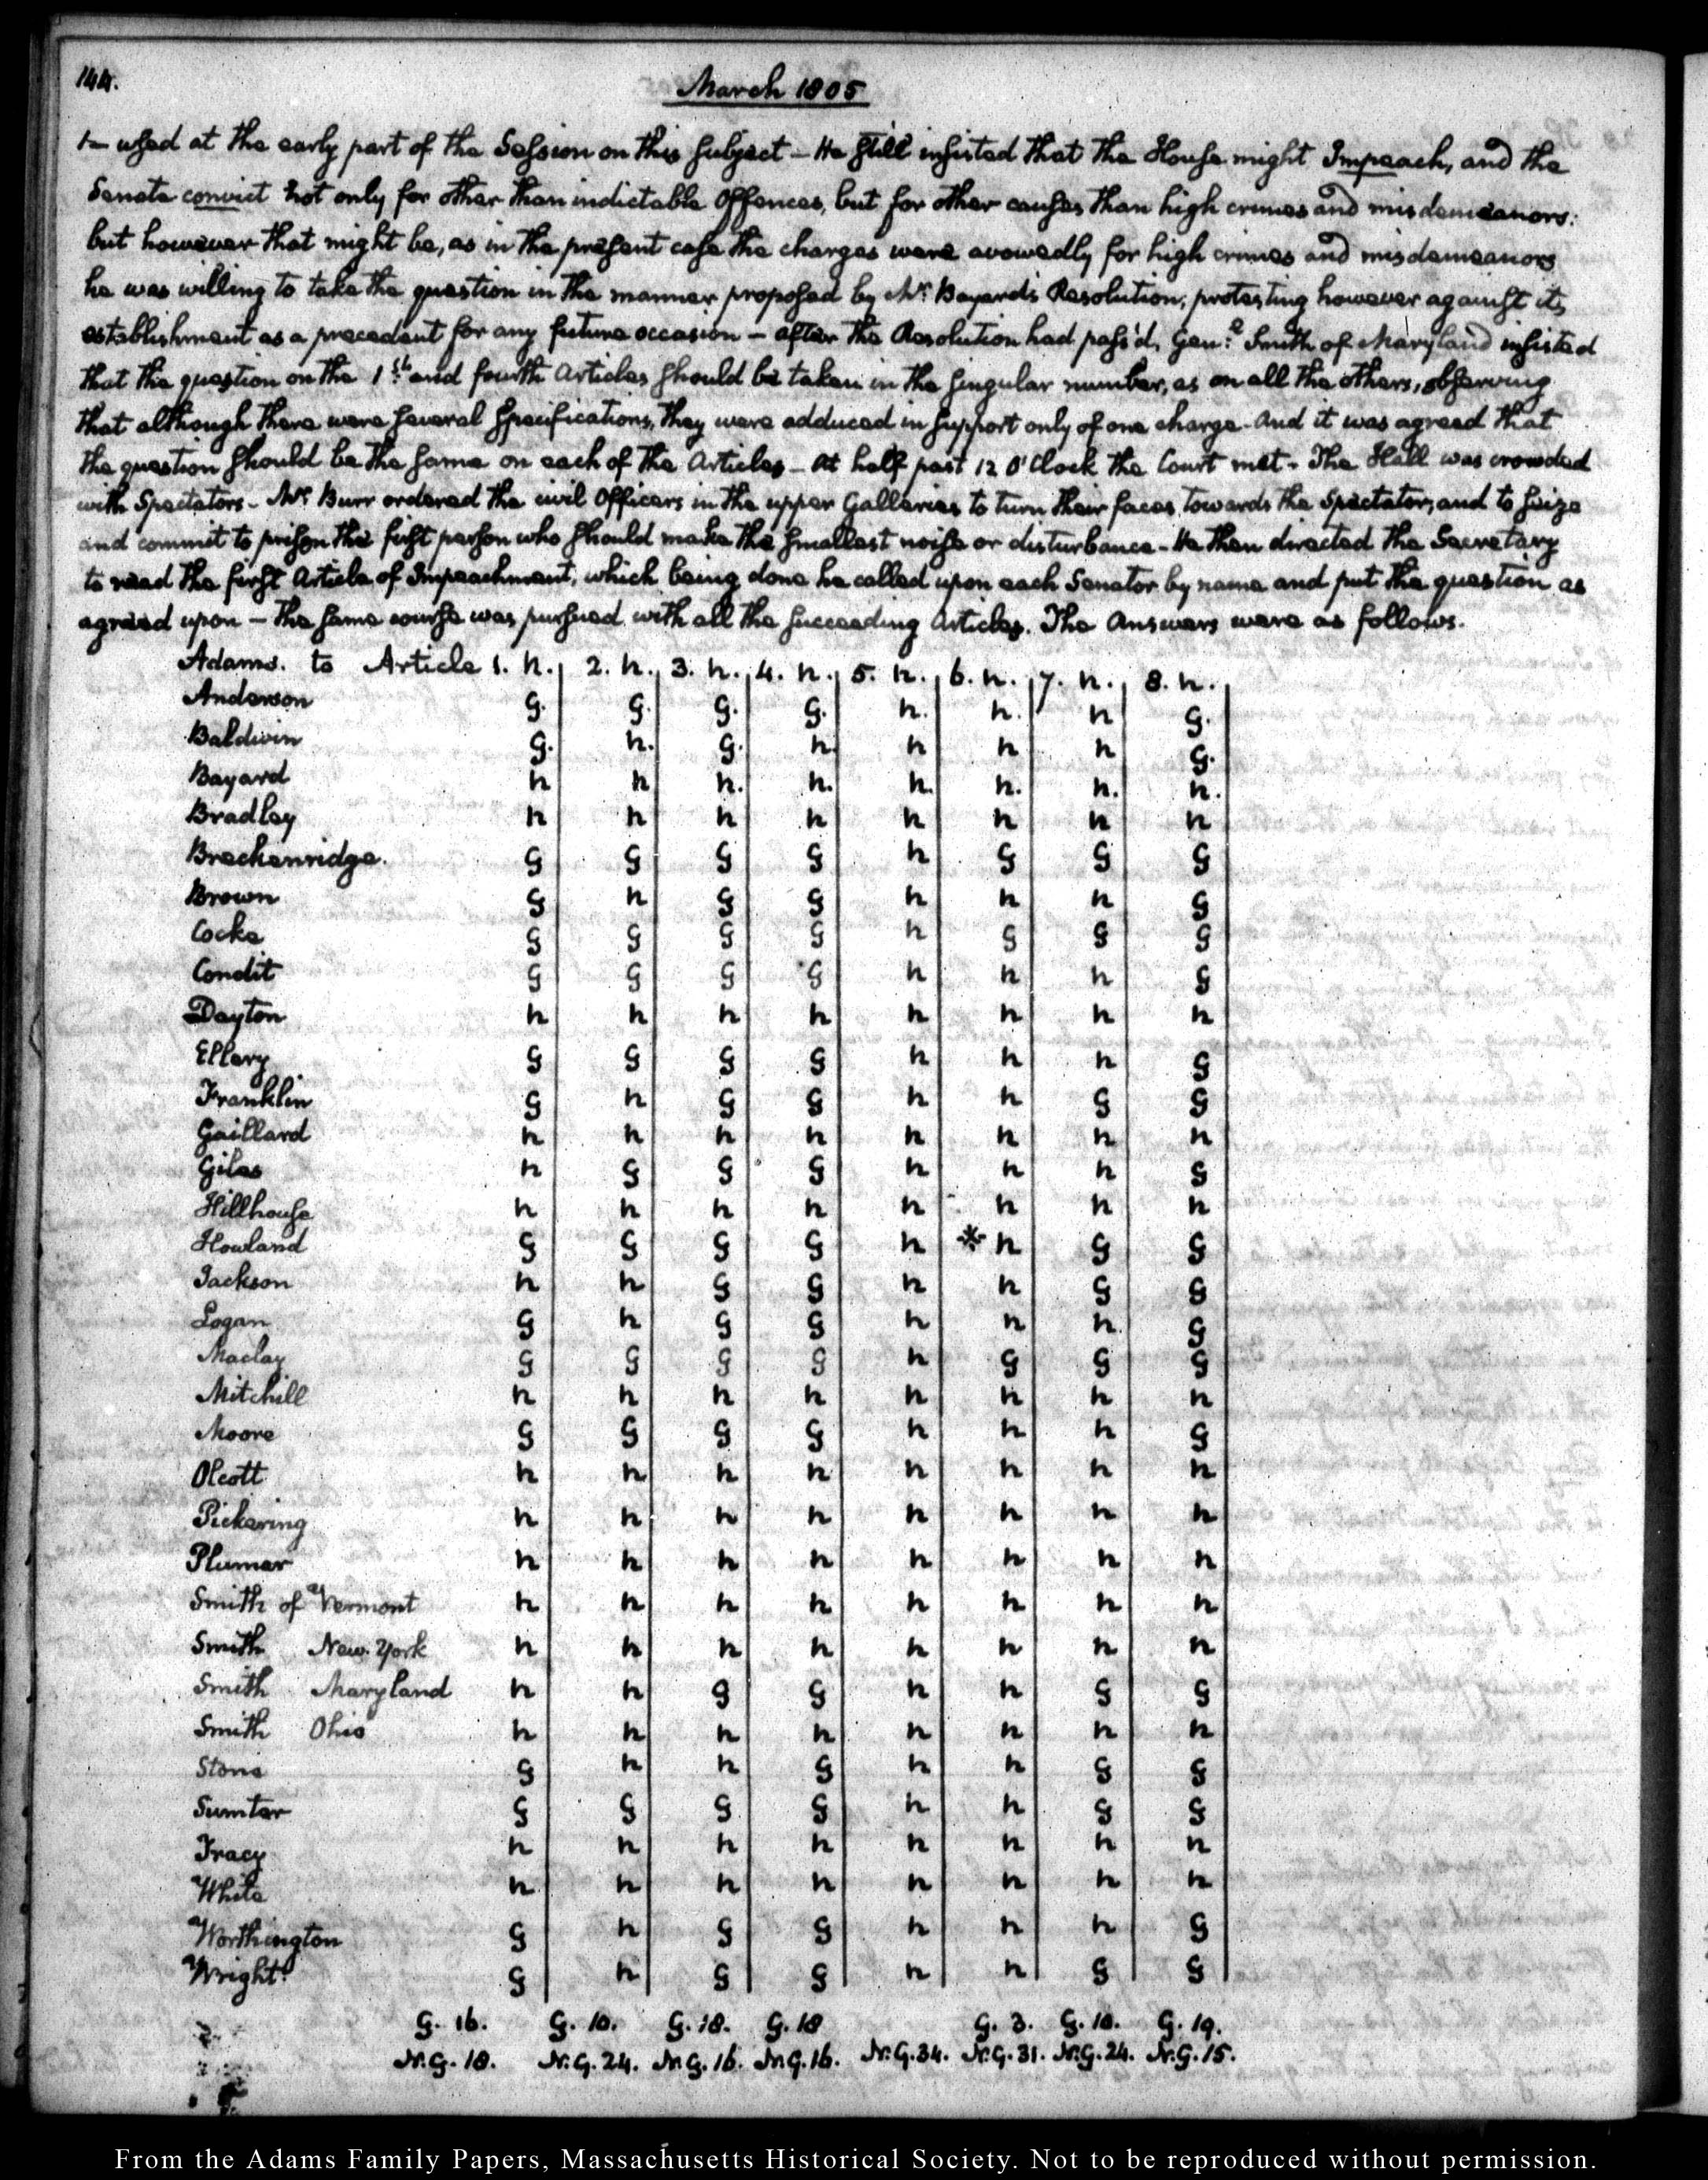 144.
March 1805
used at the early part of the Session on this subject – He still insisted that the House might Impeach, and the
Senate convict not only for other than indictable Offences, but for other causes than high crimes and misdemeanors:
but however that might be, as in the present case the charges were avowedly for high crimes and misdemeanors
he was willing to take the question in the manner proposed by Mr. Bayard's Resolution; protesting however against its
establishment as a precedent for any future occasion – after the Resolution had pass'd, Genl. Smith of Maryland insisted
that the question on the 1st. and fourth Articles should be taken in the singular number, as on all the others, observing
that although there were several specifications, they were adduced in support only of one charge – And it was agreed that
the question should be the same on each of the Articles – At half past 12 O'Clock the Court met – The Hall was crowded
with Spectators – Mr. Burr ordered the civil Officers in the upper Galleries to turn their faces towards the Spectators, and to seize
and commit to prison the first person who should make the smallest noise or disturbance – He then directed the Secretary
to read the first Article of Impeachment, which being done he called upon each Senator by name and put the question as
agreed upon – The same course was pursued with all the succeeding Articles. The Answers were as follows.
Adams. to Article 1. n. 2. n. 3. n. 4. n. 5. n. 6. n. 7. n. 8. n.
Anderson g. g. g. g. n. n. n g.
Baldwin g. n. g. n. n n n g.
Bayard n n n. n. n. n. n. n.
Bradley n n n n n n n n
Breckenridge. g g g g n g g g
Brown g n g g n n n g
Cocke g g g g n g g g
Condit g g g g n n n g
Dayton n n n n n n n n
Ellery g g g g n n n g
Franklin g n g g n n g g
Gaillard n n n n n n n n
Giles n g g g n n n g
Hillhouse n n n n n n n n
Howland g g g g n * n g g
Jackson n n g g n n g g
Logan g n g g n n n. g
Maclay g g g g n g g g
Mitchill n n n n n n n n
Moore g g g g n n n g
Olcott n n n n n n n n
Pickering n n n n n n n n
Plumer n n n n n n n n
Smith of Vermont n n n n n n n n
Smith New York n n n n n n n n
Smith Maryland n n g g n n g g
Smith Ohio n n n n n n n n
Stone g n n g n n g g
Sumter g g g g n n g g
Tracy n n n n n n n n
White n n n n n n n n
Worthington g n g g n n n g
Wright. g n g g n n g g
G. 16. G. 10. G. 18. G. 18 G. 3. G. 10. G. 19.
N.G. 18. N.G. 24. N.G. 16. N.G. 16. N.G. 34. N.G. 31. N.G. 24. N.G. 15.
From the Adams Family Papers, Massachusetts Historical Society. Not to be reproduced without permission.